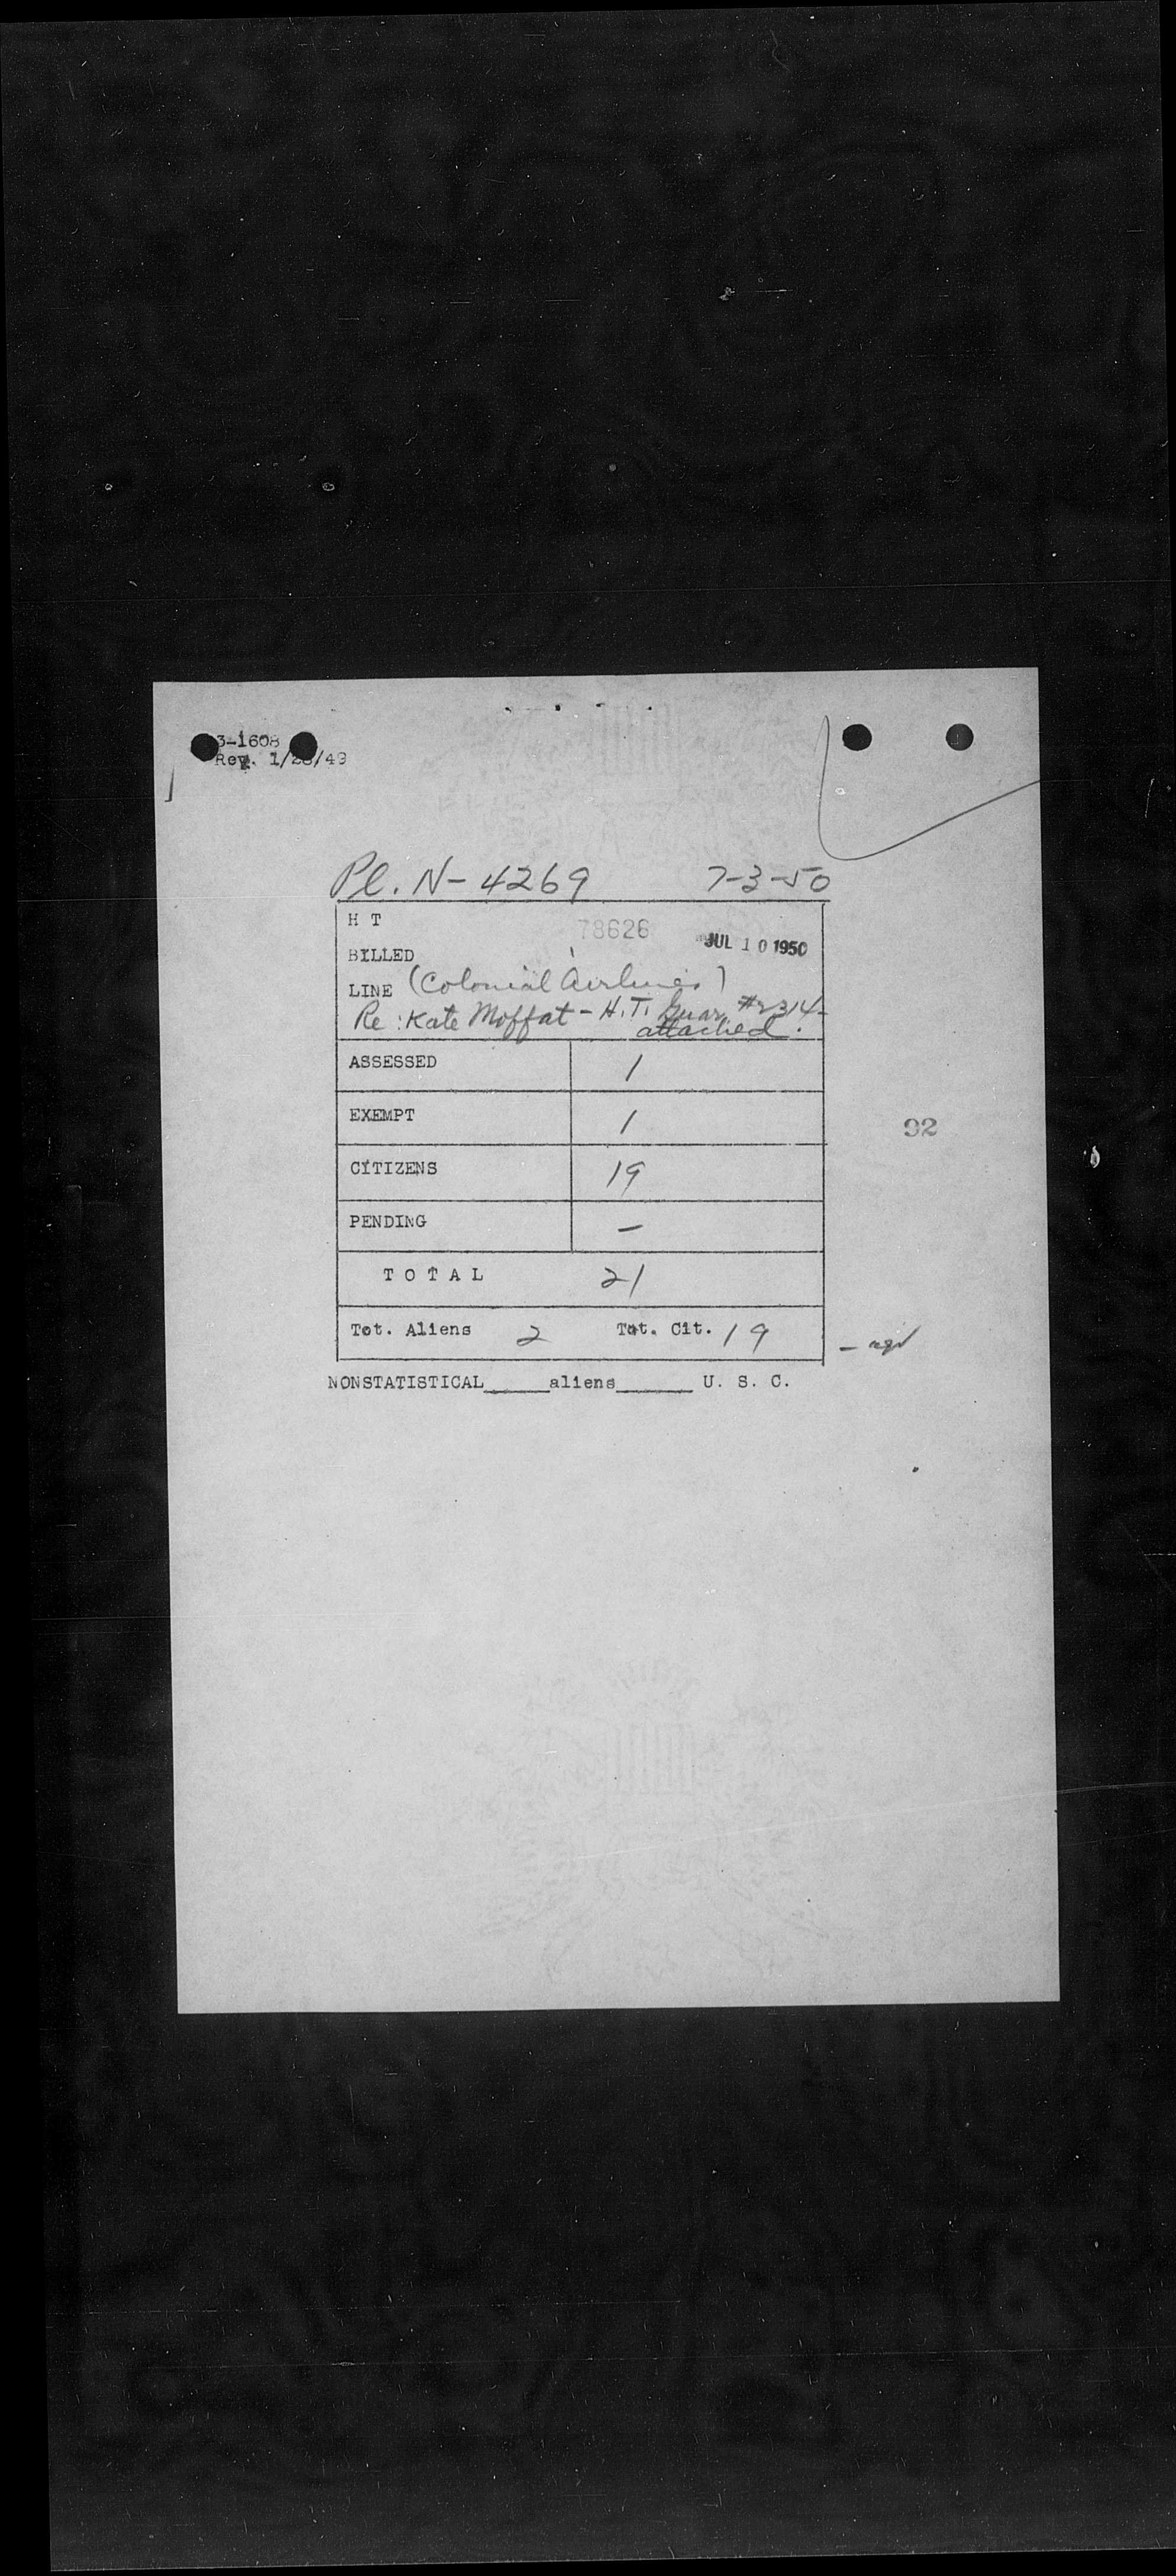 3-1608
Rev. 1/28/49
Pl. N-4269 7-3-50
H T 78626 JUL 10 1950
BILLED
LINE (Colonial Airlines)
Re: Kate Moffat - H.T. Guar. #2314-
attached.
ASSESSED 1
EXEMPT 1
92
CITIZENS 19
PENDING -
TOTAL 21
Tot. Aliens 2 Tot. Cit. 19
NONSTATISTICAL_____aliens______ U. S. C.